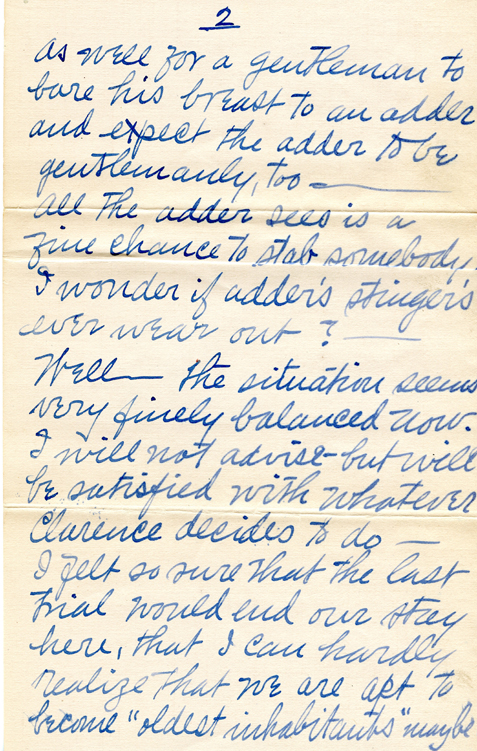 2
as well for a gentleman to
bare his breast to an adder
and expect the adder to be
gentlemanly, too —
All the adder sees is a
fine chance to stab somebody
I wonder if adder's stinger's
ever wear out ? —
Well — the situation seems
very finely balanced now.
I will not advise - but will
be satisfied with whatever
Clarence decides to do —
I felt so sure that the last
trial would end our stay
here, that I can hardly
realize that we are apt to
become "oldest inhabitants" maybe